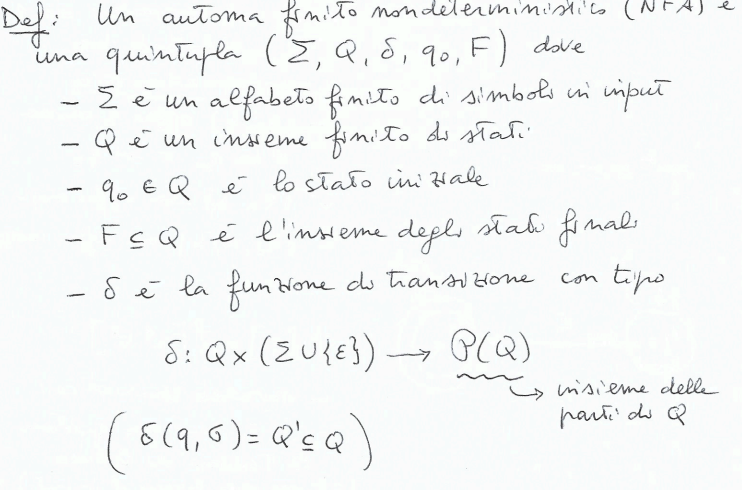 Def: Un automa finito nondeterministico (NFA) è
una quintupla (Σ, Q, δ, q₀, F) dove
– Σ è un alfabeto finito di simboli in input
– Q è un insieme finito di stati
– q₀ ∈ Q è lo stato iniziale
– F ⊆ Q è l'insieme degli stati finali
– δ è la funzione di transizione con tipo
δ: Q × (Σ ∪ {ε}) → P(Q)
↳ insieme delle
parti di Q
(δ(q, σ) = Q' ⊆ Q)